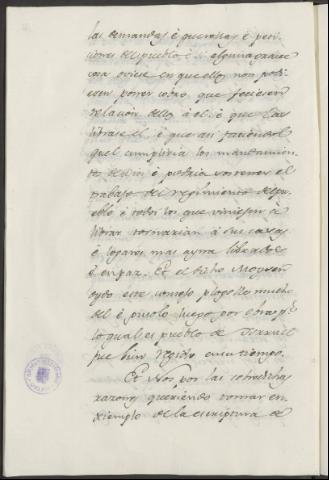 las demandas è querellas è peti-
ciones del pueblo, è si alguna grave
cosa oviese en que ellos non podi-
esen poner cobro que ficiesen
relacion dello à el, è que
librase el, è que asi faciendo
quel cumpliria los mandamien-
tos de Dios è podria sostener el
trabajo del regimiento del pu-
eblo è todos los que viniesen à
librar tornarian à sus casas
è logares mas ayna librados
è en paz. Et el dicho Moysen
oydo este consejo plogole mucho
del è pusolo luego por obra, por
lo qual el pueblo de Israel
fue bien regido en su tiempo.
Et Nos por las sobredichas
razones queriendo tomar en-
xiemplo de la escriptura de